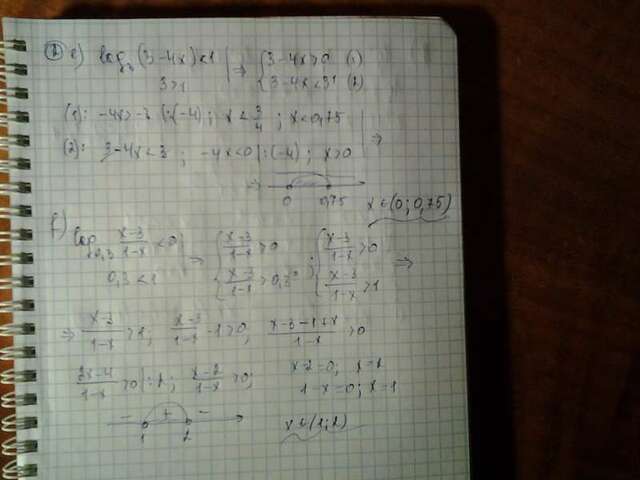 ① a) log₃(3-4x)<1 | ⇒ {3-4x>0 (1)
3>1 | {3-4x<3¹ (2)
(1): -4x>-3 |:(-4); x<3/4; x<0,75
(2): 3-4x<3; -4x<0|:(-4); x>0 | ⇒
⇒ 0 0,75 x∈(0;0,75)
log₀,₃ (x-3)/(1-x) <0 | ⇒ {(x-3)/(1-x)>0 ; {(x-3)/(1-x)>0 ⇒
0,3<1 | {(x-3)/(1-x)>0,3⁰ {(x-3)/(1-x)>1
⇒ (x-3)/(1-x)>1; (x-3)/(1-x)-1>0; (x-3-1+x)/(1-x)>0
(2x-4)/(1-x)>0|:2; (x-2)/(1-x)>0; x-2=0; x=2
1-x=0; x=1
- + -
1 2 x∈(1;2)